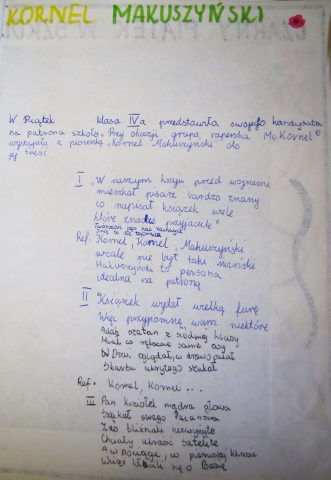 KORNEL MAKUSZYŃSKI
W Piątek klasa IVa przedstawiła swojego kandydata
na patrona szkoły. Przy okazji grupa raperska Mc Kornel
wystąpiła z piosenką „Kornel Makuszyński" oto
jej treść
I „W naszym kraju przed wojnami
mieszkał pisarz bardzo znany
co napisał książek wiele
które znacie przyjaciele"
Ref. Kornel, Kornel, Makuszyński
wcale nie był taki
Makuszyński to persona
idealna na patrona
II Książek wydał wielką furę
Więc przypomnę wam niektóre
szatan z siódmej klasy
Miał w same asy
oglądał, w drzewo pukał
Skarbu ukrytego szukał
Ref. Kornel, Kornel ...
III Pan Koziołek mądra głowa
Szukał swego Pacanowa
Zaś bliźniaki niezwyczajne
Chciały ukraść satelitę
A w pociągu, w pierwszej klasie
się o Basię